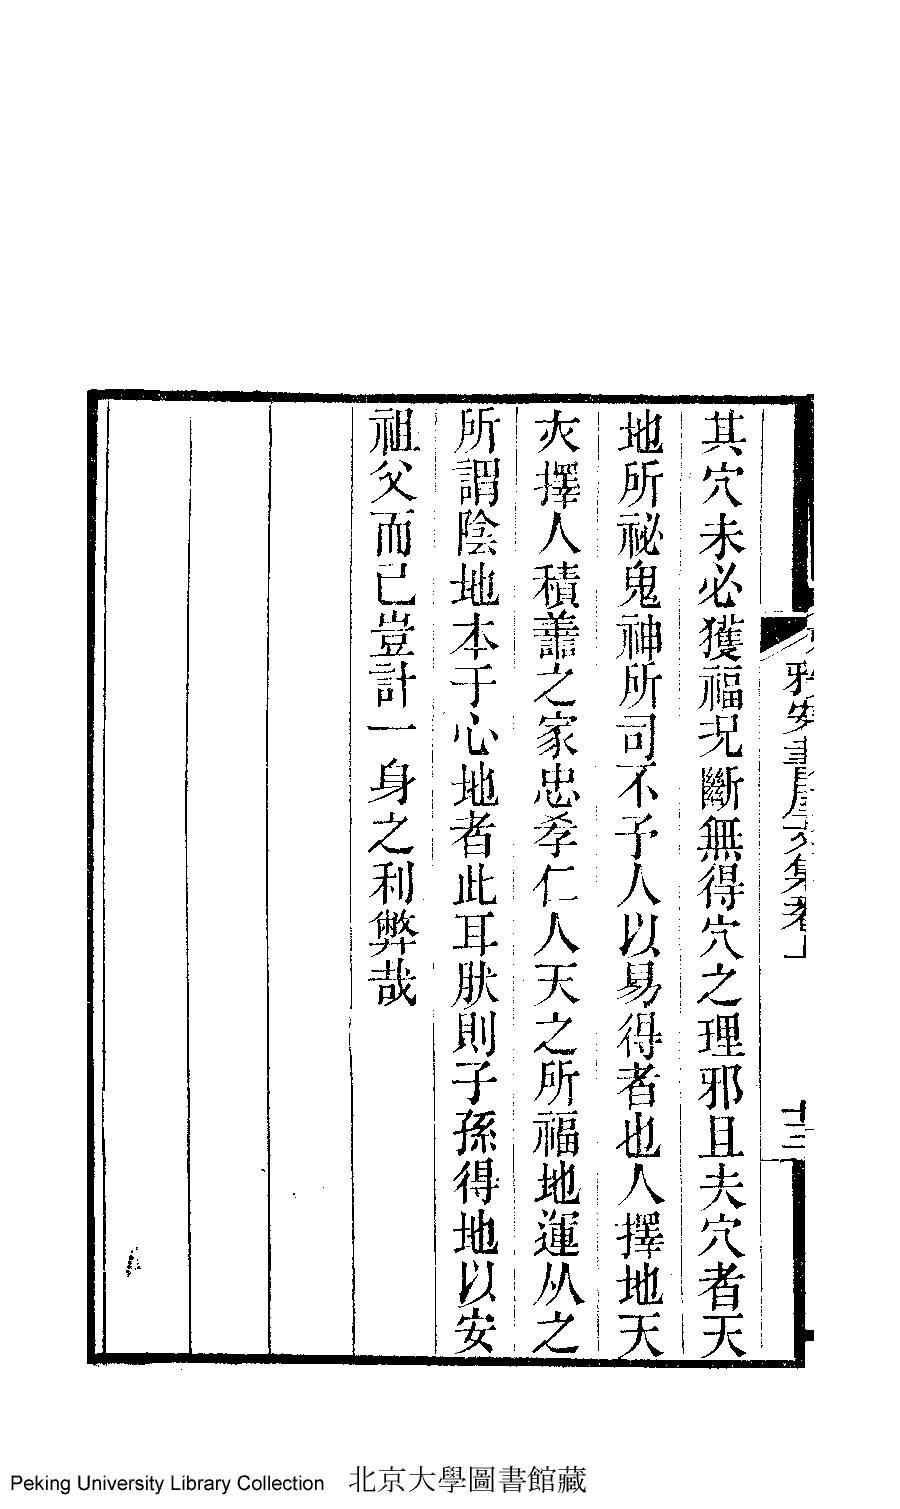 其穴未必獲福況斷無得穴之理邪且夫穴者天
地所祕鬼神所司不予人以易得者也人擇地天
亦擇人積善之家忠孝仁人天之所福地運从之
所謂陰地本于心地者此耳肰則子孫得地以安
祖父而已豈計一身之利弊哉
雅安書屋文集卷上
十三
Peking University Library Collection 北京大學圖書館藏